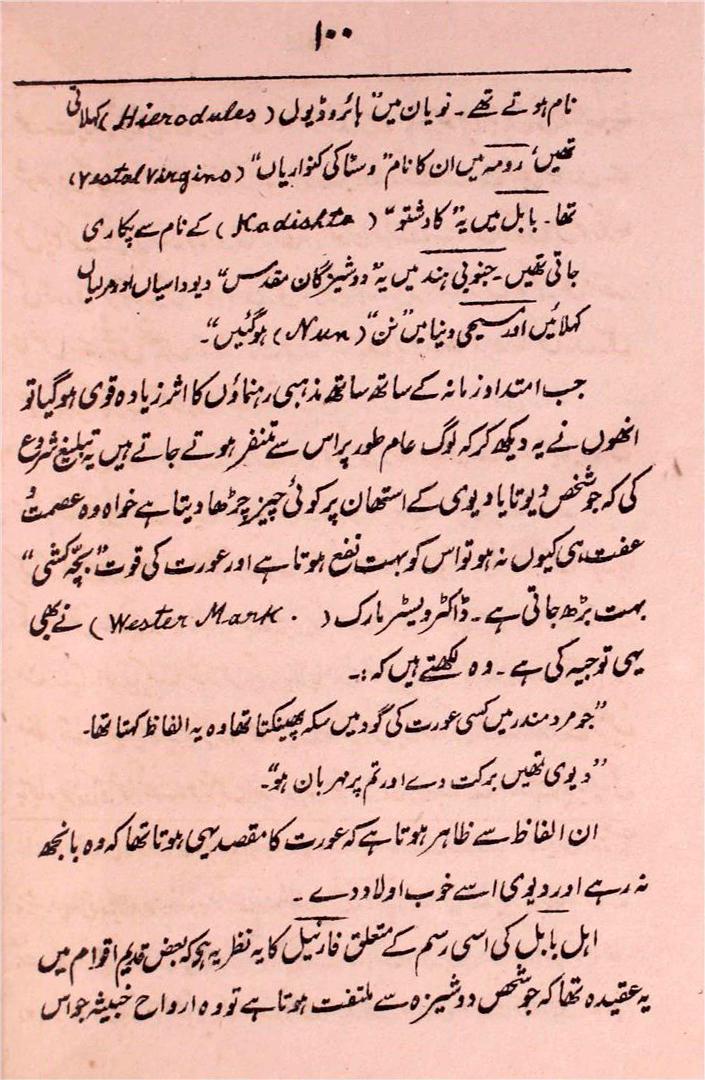 ۱۰۰
نام ہوتے تھے۔ نویان میں "ہائروڈیول (Hierodules) کہلاتی
تھیں، رومہ میں ان کا نام "وسٹا کی کنواریاں" (Vestal Virgins)
تھا۔ بابل میں یہ "کادشتو" (Kadishtu) کے نام سے پکاری
جاتی تھیں۔ جنوبی ہند میں یہ "دوشیزگان مقدس" دیوداسیاں اور مرلیاں
کہلائیں اور مسیحی دنیا میں "نن" (Nun) ہوگئیں"۔
جب امتداد زمانہ کے ساتھ ساتھ مذہبی رہنماؤں کا اثر زیادہ قوی ہوگیا تو
انھوں نے یہ دیکھ کر کہ لوگ عام طور پر اس سے متنفر ہوتے جاتے ہیں یہ تبلیغ شروع
کی کہ جو شخص دیوتا یا دیوی کے استھان پر کوئی چیز چڑھا دیتا ہے خواہ وہ عصمت و
عفت ہی کیوں نہ ہو تو اس کو بہت نفع ہوتا ہے اور عورت کی قوت "بچّہ کشی"
بہت بڑھ جاتی ہے۔ ڈاکٹر ویسٹر مارک (Wester Mark.) نے بھی
یہی توجیہ کی ہے۔ وہ لکھتے ہیں کہ :۔
"جو مرد مندر میں کسی عورت کی گود میں سکہ پھینکتا تھا وہ یہ الفاظ کہتا تھا۔
"دیوی تمھیں برکت دے اور تم پر مہربان ہو"۔
ان الفاظ سے ظاہر ہوتا ہے کہ عورت کا مقصد یہی ہوتا تھا کہ وہ بانجھ
نہ رہے اور دیوی اسے خوب اولاد دے۔
اہل بابل کی اسی رسم کے متعلق فارنیل کا یہ نظریہ ہے کہ بعض قدیم اقوام میں
یہ عقیدہ تھا کہ جو شخص دوشیزہ سے ملتفت ہوتا ہے تو وہ ارواح خبیثہ جو اس